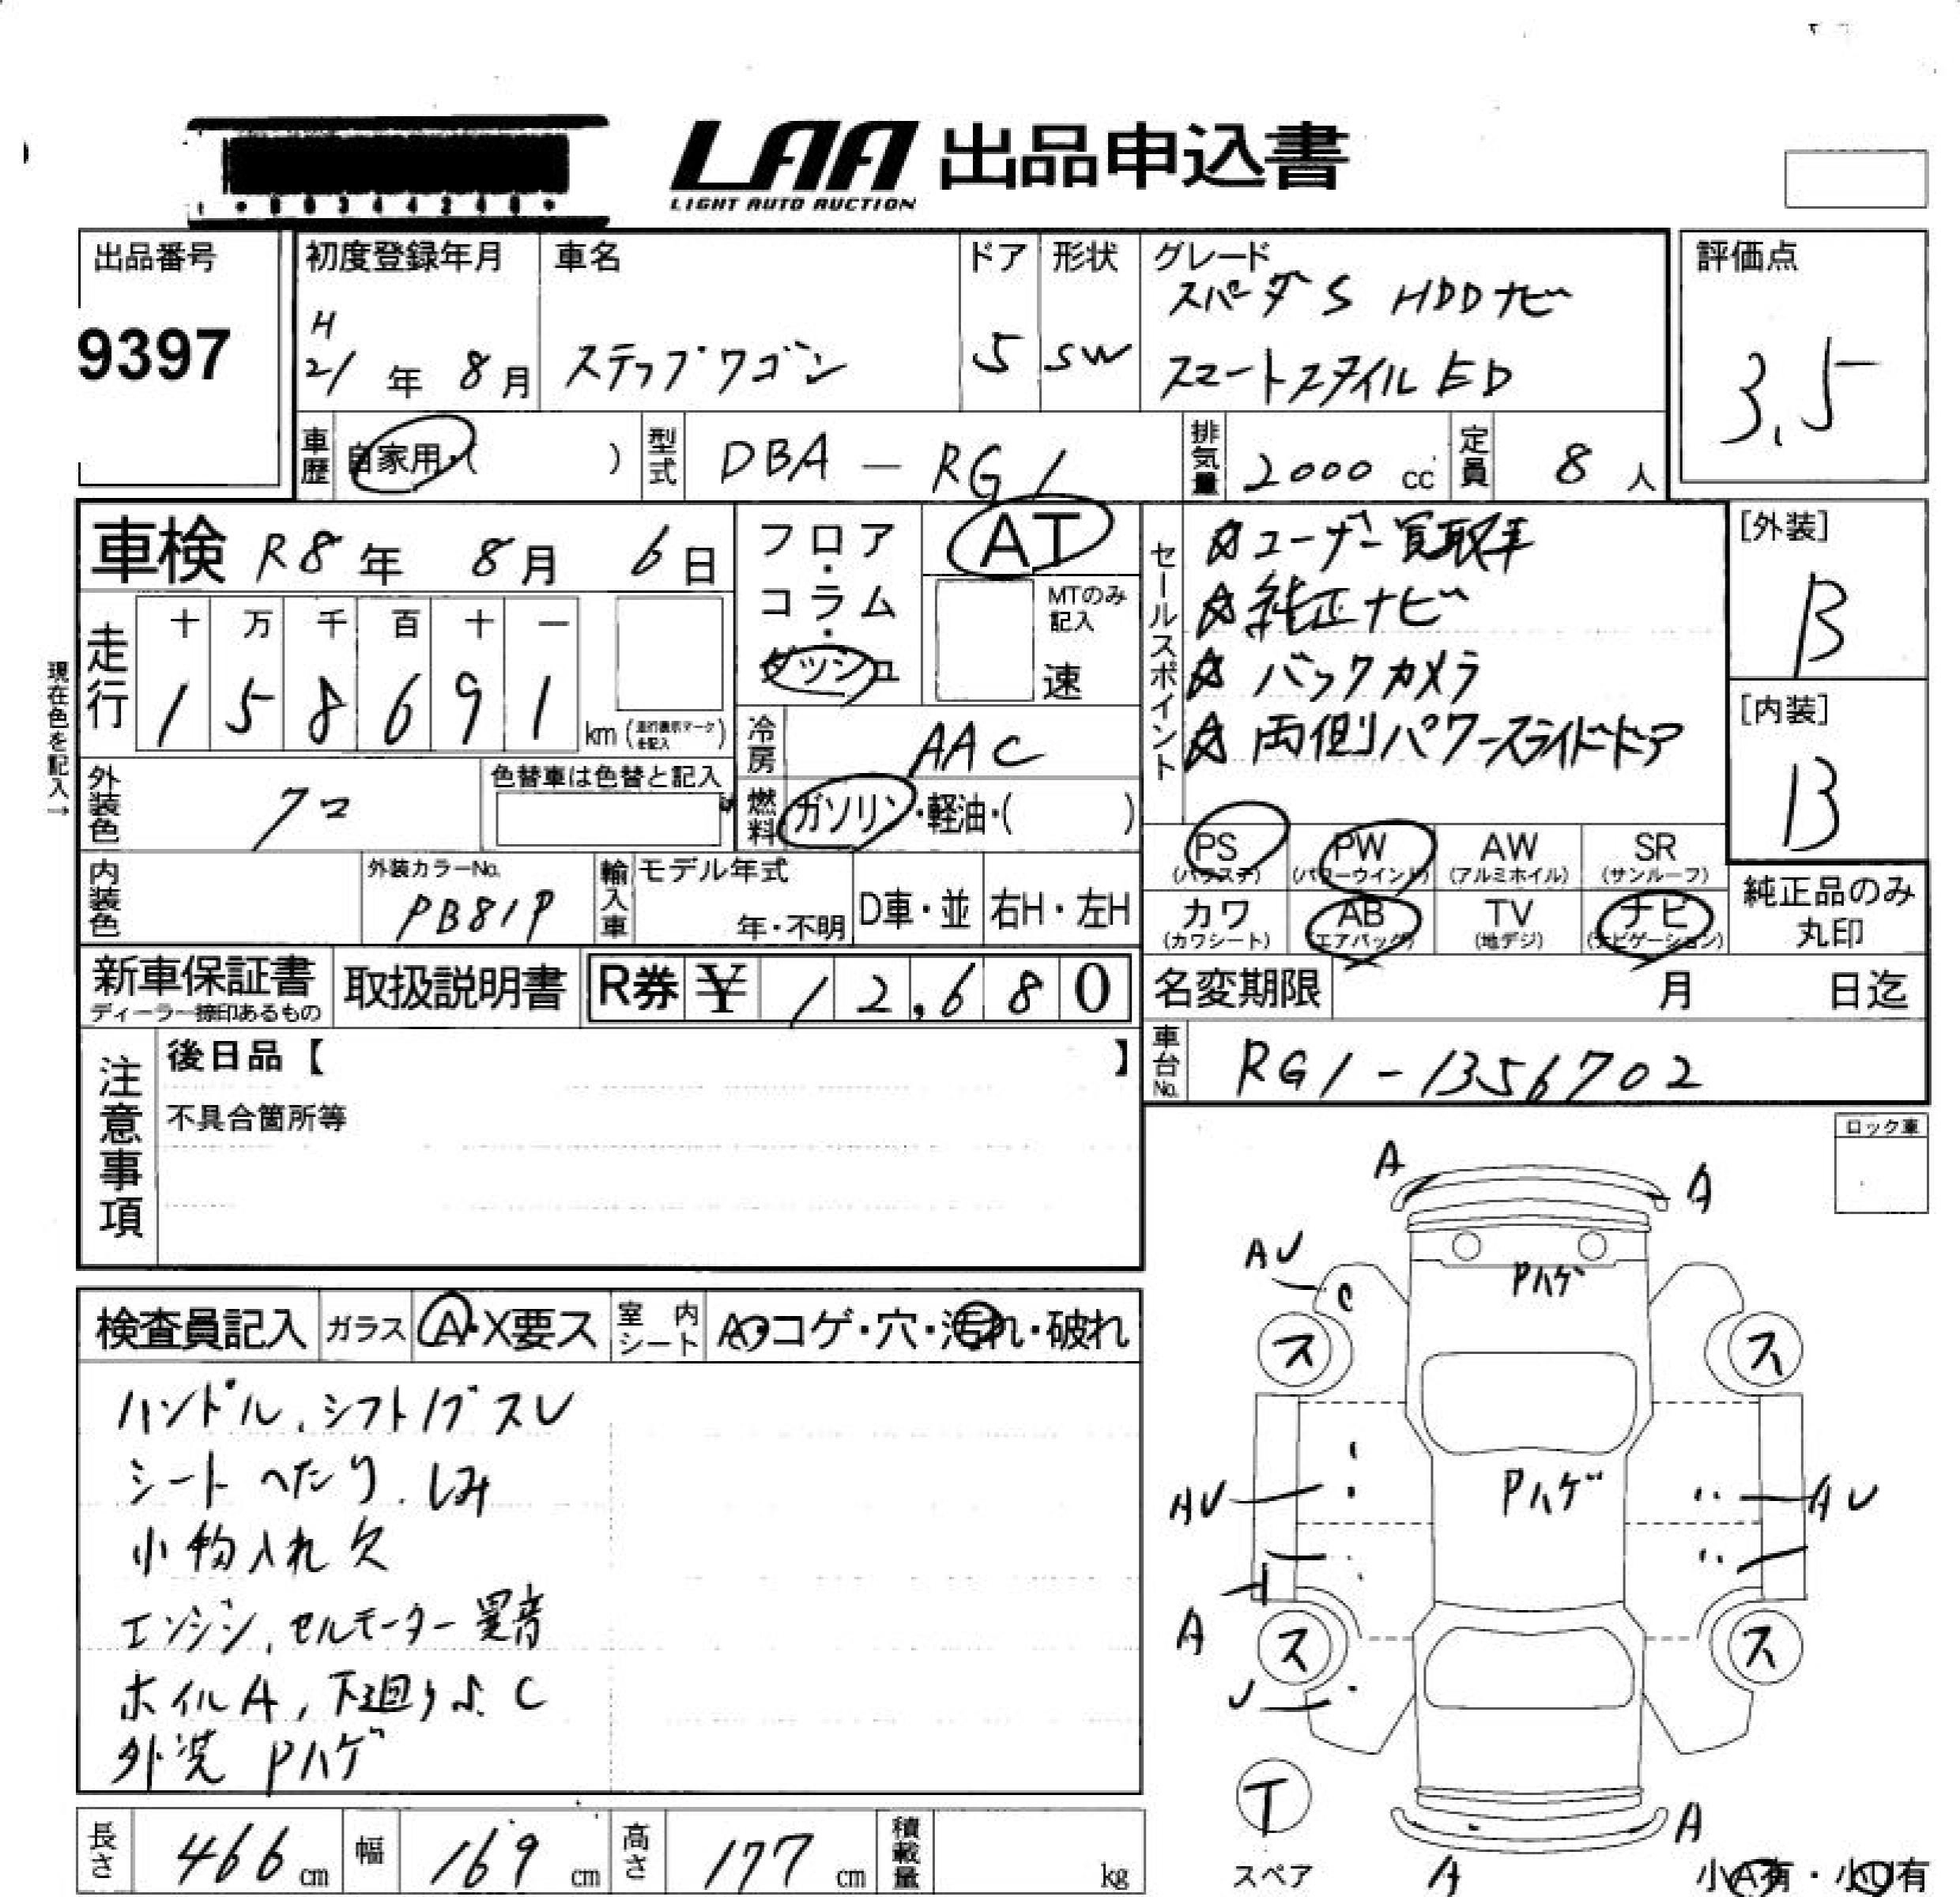 LAA 出品申込書
LIGHT AUTO AUCTION
出品番号
9397
初度登録年月
H
21 年 8 月
車名
ステップワゴン
ドア
5
形状
SW
グレード
スパーダS HDDナビ
スマートスタイルED
評価点
3.5
車歴
自家用・( )
型式
DBA - RG1
排気量
2000 cc
定員
8 人
車検 R8年 8月 6日
フロア・コラム・ダッシュ
AT
MTのみ記入
速
セールスポイント
☆ユーザー買取車
☆純正ナビ
☆バックカメラ
☆両側パワースライドドア
[外装]
B
[内装]
B
現在色を記入→
走行
十 万 千 百 十 一
1 5 8 6 9 1
km (走行表示マークを記入)
冷房
AAC
外装色
クロ
色替車は色替と記入
燃料
ガソリン・軽油・( )
PS
(パワステ)
PW
(パワーウインド)
AW
(アルミホイル)
SR
(サンルーフ)
カワ
(カワシート)
AB
(エアバッグ)
TV
(地デジ)
ナビ
(ナビゲーション)
純正品のみ
丸印
内装色
外装カラーNo.
PB81P
輸入車
モデル年式
年・不明
D車・並
右H・左H
新車保証書
ディーラー捺印あるもの
取扱説明書
R券 ¥ 12,680
名変期限 月 日迄
車台No.
RG1-1356702
注意事項
後日品【 】
不具合箇所等
ロック車
検査員記入
ガラス
A・X要ス
室内シート
A・コゲ・穴・汚れ・破れ
ハンドル、シフトノブスレ
シートへたり、しみ
小物入れ欠
エンジン、セルモーター異音
ホイルA, 下廻りS.C
外装 Pハゲ
A
A
AU
C
Pハゲ
ス
ス
AU
Pハゲ
AU
A
ス
ス
U
T
スペア
A
A
小A有・小U有
長さ
466 cm
幅
169 cm
高さ
177 cm
積載量
kg